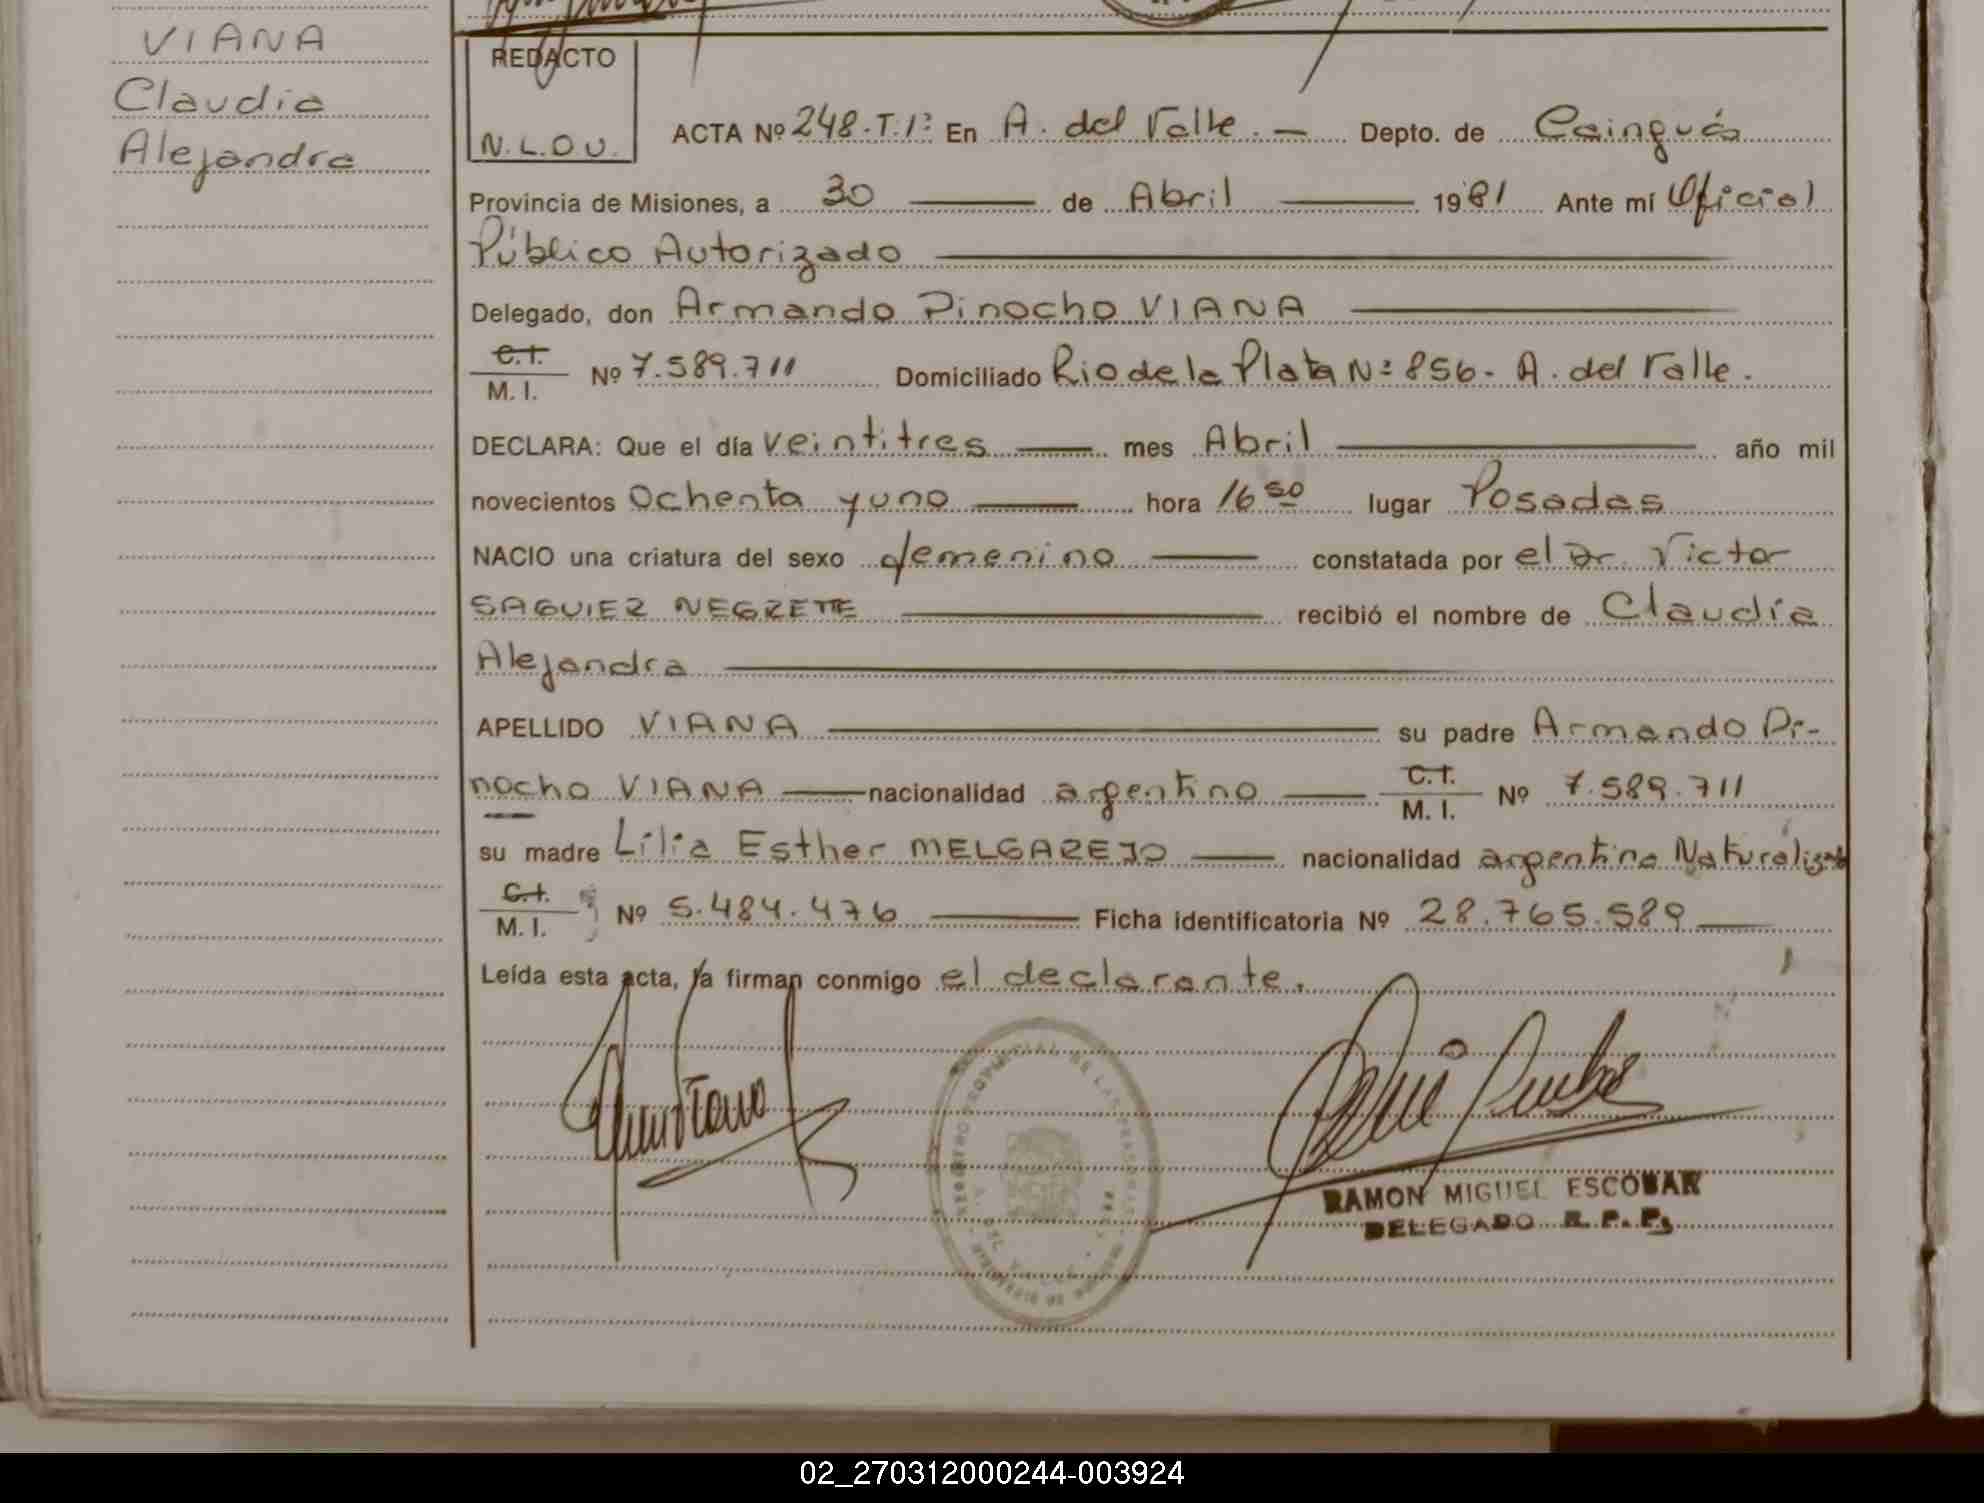 VIANA
Claudia
Alejandra
REDACTO
N.L.O.V.
ACTA Nº 248.T.1º En A. del Valle. — Depto. de Cainguás
Provincia de Misiones, a 30 — de Abril — 1981 Ante mí Oficial
Público Autorizado —
Delegado, don Armando Pinocho VIANA —
C.I.
M. I. Nº 7.589.711 Domiciliado Rio de la Plata Nº 856- A. del Valle.
DECLARA: Que el día veintitres — mes Abril — año mil
novecientos Ochenta y uno — hora 16 50 lugar Posadas
NACIO una criatura del sexo femenino — constatada por el Dr. Victor
SAGUIER NEGRETE — recibió el nombre de Claudia
Alejandra —
APELLIDO VIANA — su padre Armando Pi-
nocho VIANA — nacionalidad argentino — C.I. M. I. Nº 7.589.711
su madre Lilia Esther MELGAREJO — nacionalidad argentina
C.I.
M. I. Nº 5.484.476 — Ficha identificatoria Nº 28.765.589 —
Leída esta acta, la firman conmigo el declarante.
RAMON MIGUEL ESCOBAR
DELEGADO R. P. P.
02_270312000244-003924